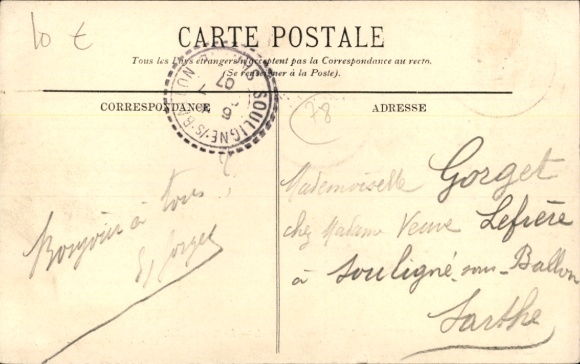 10 €
CARTE POSTALE
Tous les Pays étrangers n'acceptent pas la Correspondance au recto.
(Se renseigner à la Poste).
SOULIGNÉ-/S-BALLON
6
07
CORRESPONDANCE
ADRESSE
78
Bonjour à tous
Gorget
Mademoiselle Gorget
chez Madame Veuve Lefrère
à Souligné-sous-Ballon
Sarthe